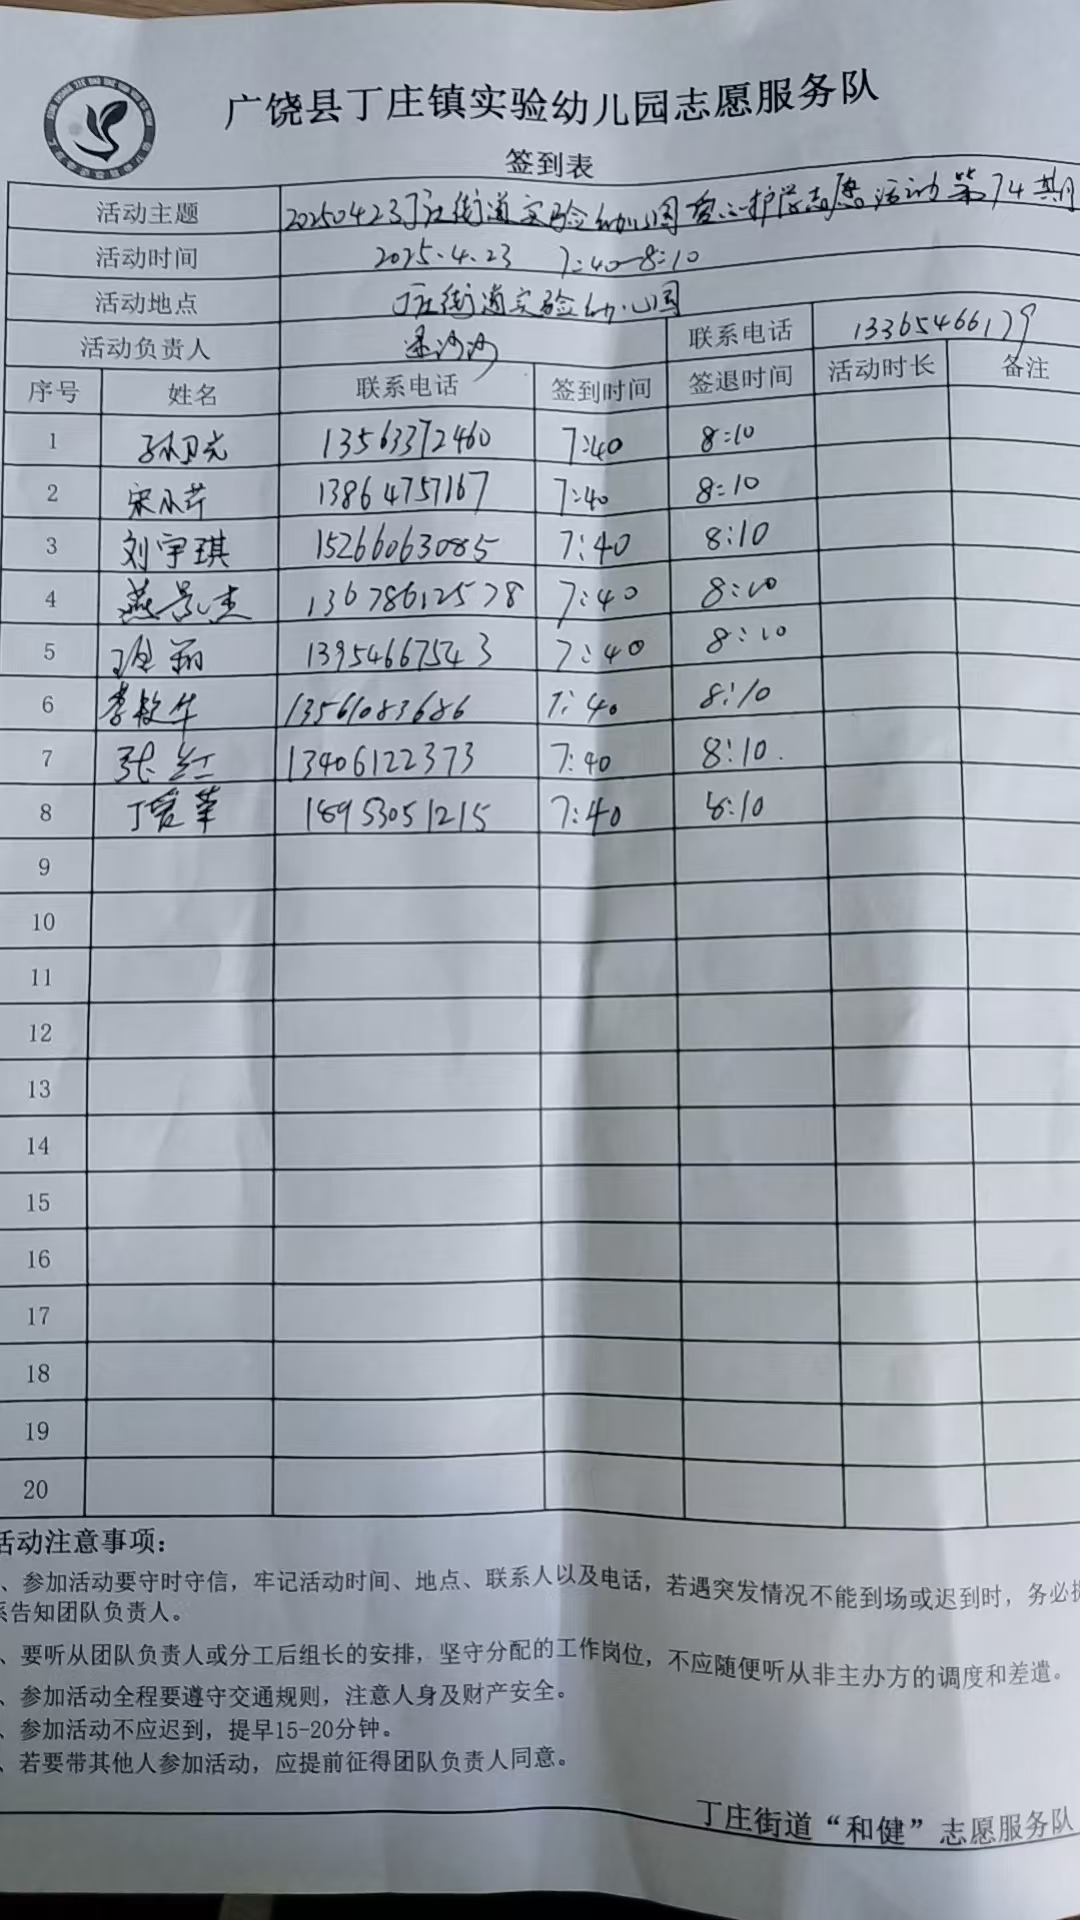 广饶县丁庄镇实验幼儿园志愿服务队
签到表
活动主题 20250423丁庄街道实验幼儿园爱心护学志愿活动第74期
活动时间 2025.4.23 7:40-8:10
活动地点 丁庄街道实验幼儿园
活动负责人 沙沙 联系电话 13365466179
序号 姓名 联系电话 签到时间 签退时间 活动时长 备注
1 孙卫光 13563372460 7:40 8:10
2 宋小芹 13864757167 7:40 8:10
3 刘宇琪 15266063085 7:40 8:10
4 燕景杰 13678612578 7:40 8:10
5 13954667543 7:40 8:10
6 李敏华 13561083686 7:40 8:10
7 张红 13406122373 7:40 8:10
8 丁爱苹 18953051215 7:40 8:10
9
10
11
12
13
14
15
16
17
18
19
20
活动注意事项：
、参加活动要守时守信，牢记活动时间、地点、联系人以及电话，若遇突发情况不能到场或迟到时，务必提
系告知团队负责人。
、要听从团队负责人或分工后组长的安排，坚守分配的工作岗位，不应随便听从非主办方的调度和差遣。
、参加活动全程要遵守交通规则，注意人身及财产安全。
、参加活动不应迟到，提早15-20分钟。
、若要带其他人参加活动，应提前征得团队负责人同意。
丁庄街道“和健”志愿服务队